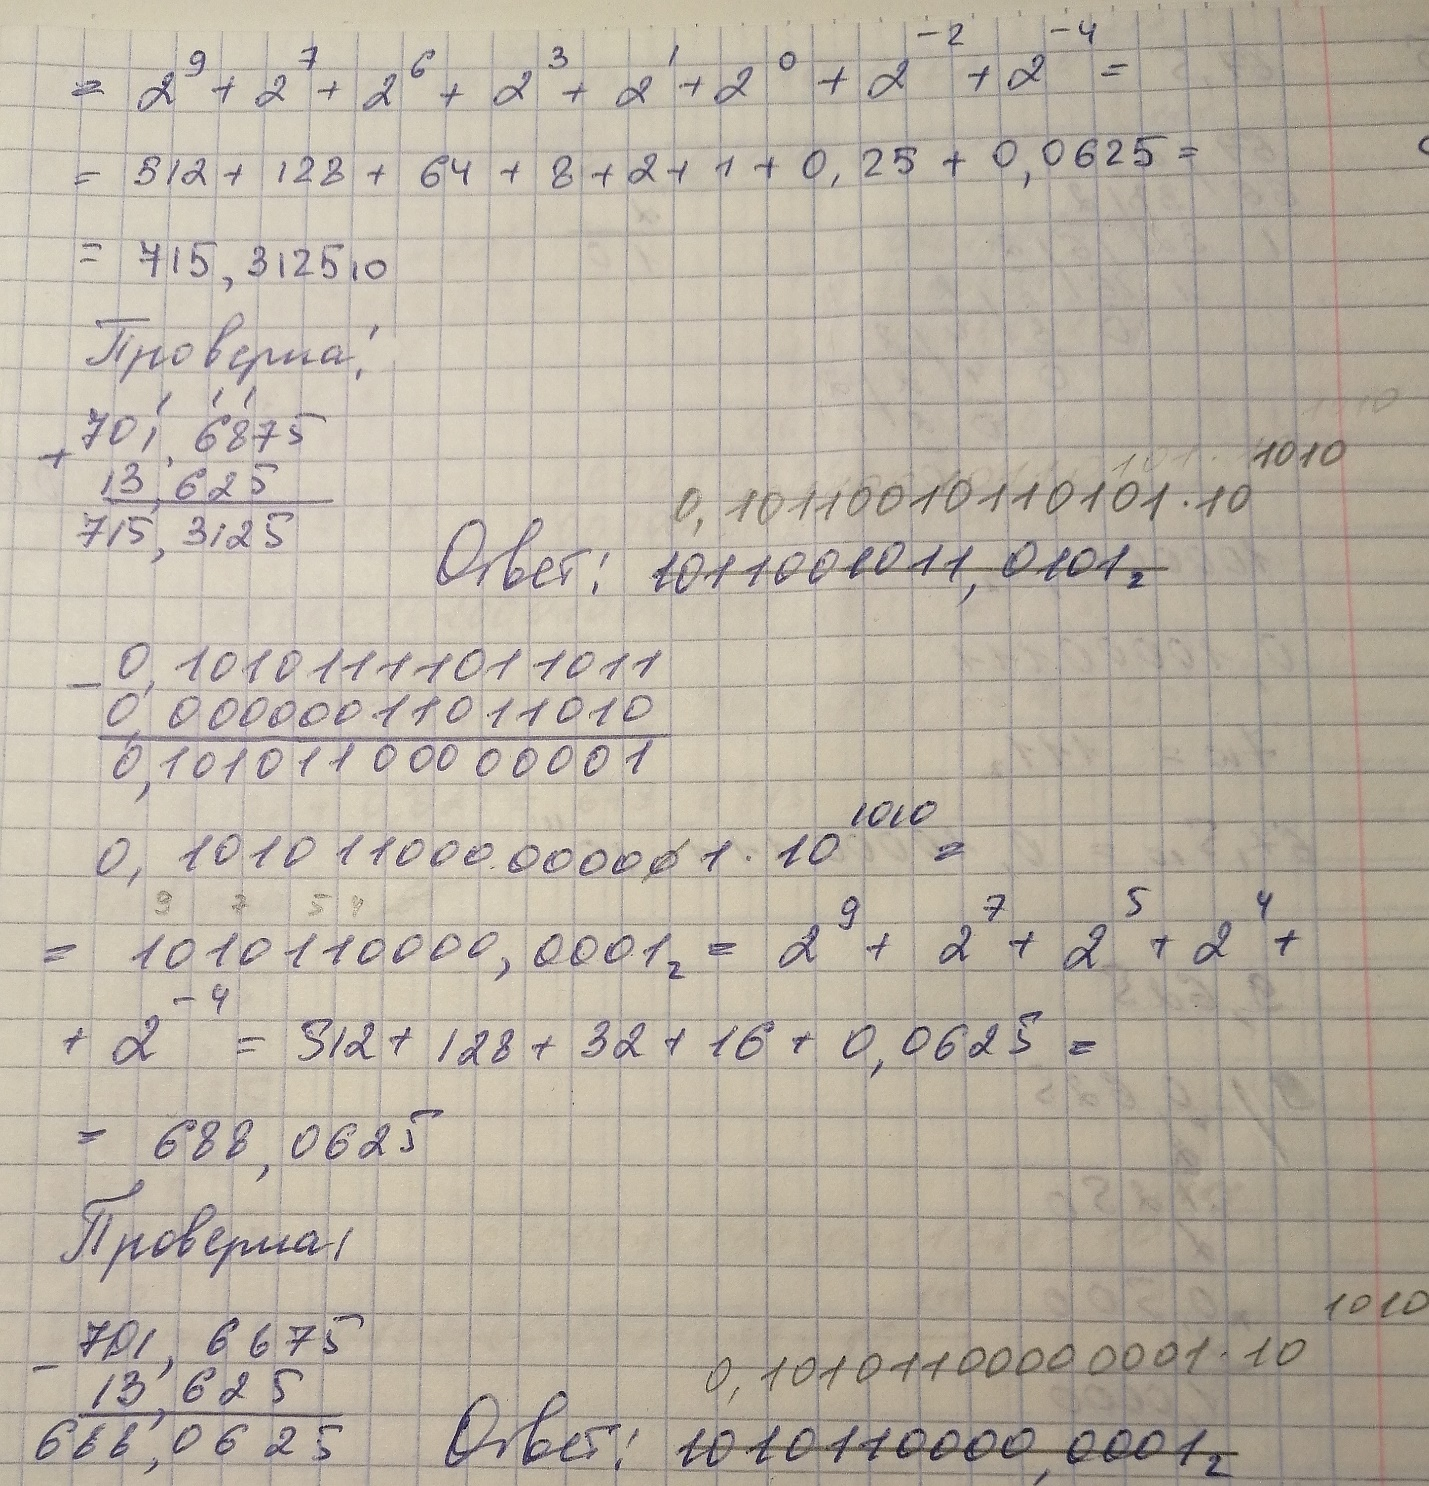 = 2⁹ + 2⁷ + 2⁶ + 2³ + 2¹ + 2⁰ + 2⁻² + 2⁻⁴ =
= 512 + 128 + 64 + 8 + 2 + 1 + 0,25 + 0,0625 =
= 715,3125₁₀
Проверка:
+ 701,6875
13,625
715,3125
0,10110010110101·10¹⁰¹⁰
Ответ: 1011001011,0101₂
− 0,10101111011011
0,00000011011010
0,10101100000001
0,10101100000001·10¹⁰¹⁰ =
9 7 5 4
= 1010110000,0001₂ = 2⁹ + 2⁷ + 2⁵ + 2⁴ +
+ 2⁻⁴ = 512 + 128 + 32 + 16 + 0,0625 =
= 688,0625
Проверка:
− 701,6875
13,625
688,0625
0,10101100000001·10¹⁰¹⁰
Ответ: 1010110000,0001₂